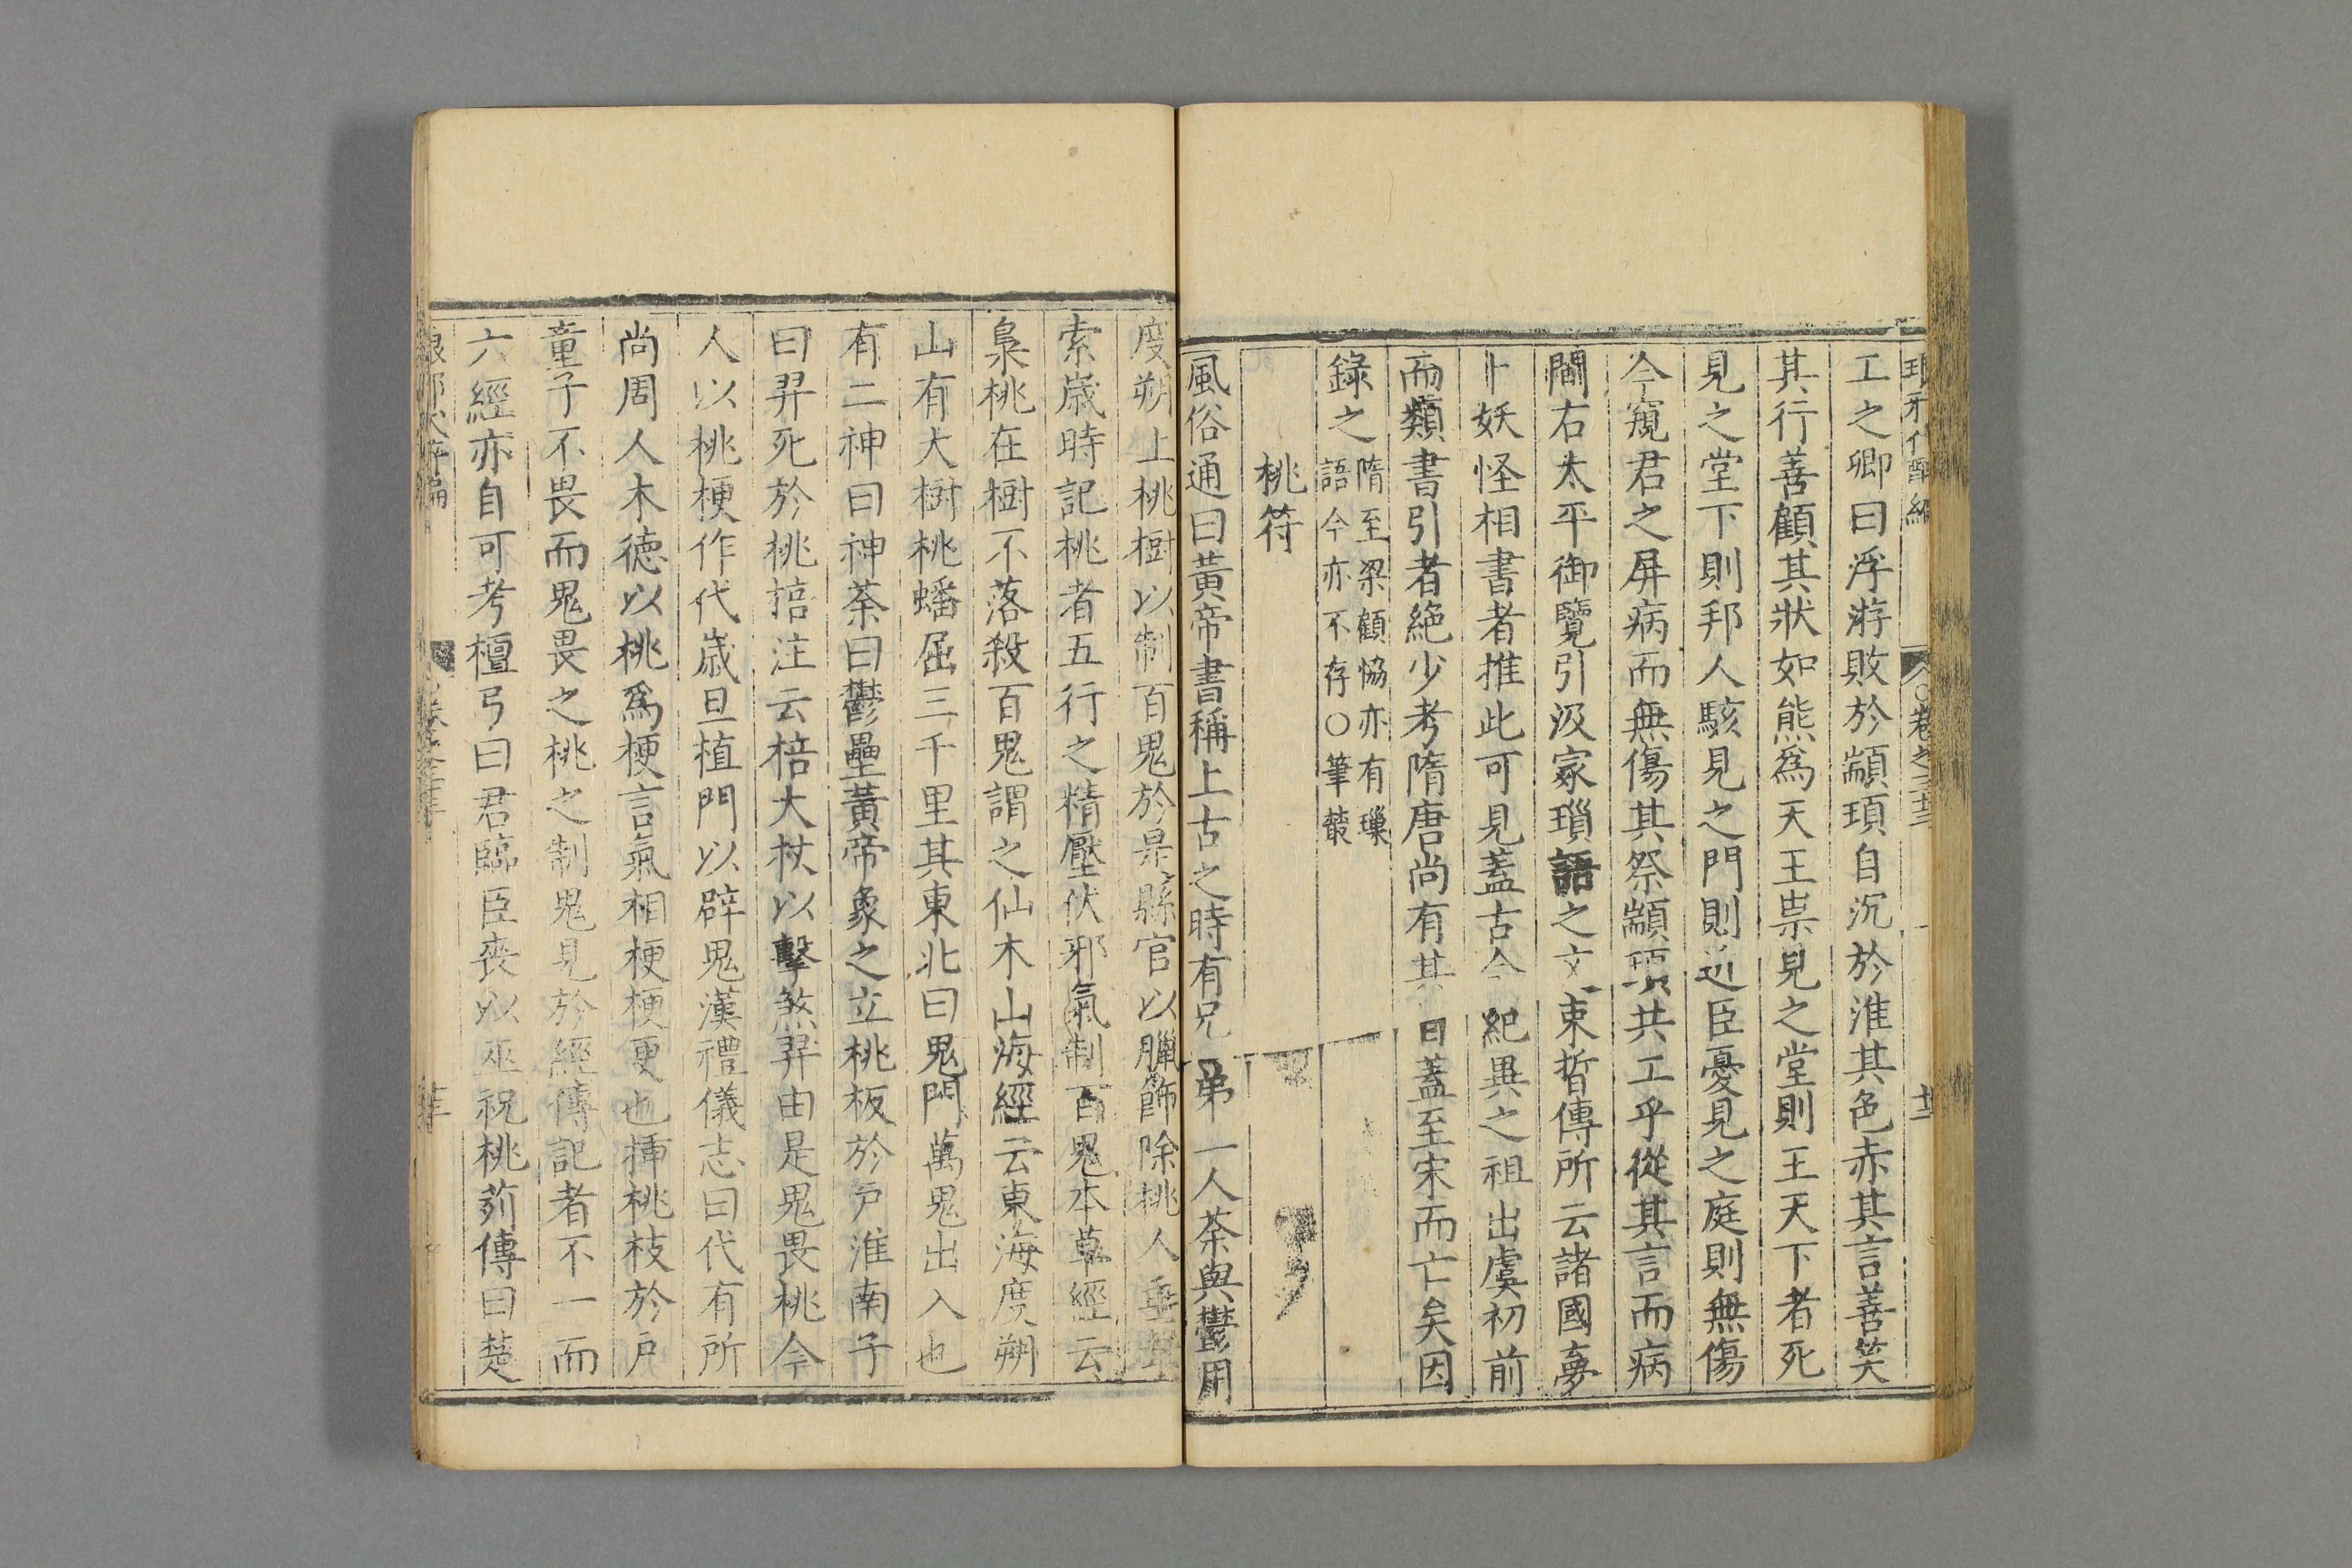 工之卿曰浮游敗於顓頊自沉於淮其色赤其言善笑
其行善顧其狀如熊爲天王祟見之堂則王天下者死
見之堂下則邦人駭見之門則近臣憂見之庭則無傷
今窺君之屏病而無傷其祭顓頊共工乎從其言而病
間右太平御覽引汲冢瑣語之文束晳傳所云諸國夢
卜妖怪相書者推此可見蓋古今紀異之祖出虞初前
而類書引者絶少考隋唐尚有其目蓋至宋而亡矣因
錄之
隋至梁顧恊亦有璅
語今亦不存○筆叢
桃符
風俗通曰黃帝書稱上古之時有兄弟一人荼與鬱用
度朔上桃樹以制百鬼於是縣官以臘飾除桃人垂葦
索歲時記桃者五行之精壓伏邪氣制百鬼本草經云
梟桃在樹不落殺百鬼謂之仙木山海經云東海度朔
山有大樹桃蟠屈三千里其東北曰鬼門萬鬼出入也
有二神曰神荼曰鬱壘黃帝象之立桃板於戶淮南子
曰羿死於桃掊注云棓大杖以擊煞羿由是鬼畏桃今
人以桃梗作代歲旦植門以辟鬼漢禮儀志曰代有所
尚周人木德以桃爲梗言氣相梗梗更也揷桃枝於戶
童子不畏而鬼畏之桃之制鬼見於經傳記者不一而
六經亦自可考檀弓曰君臨臣喪以巫祝桃茢傳曰楚